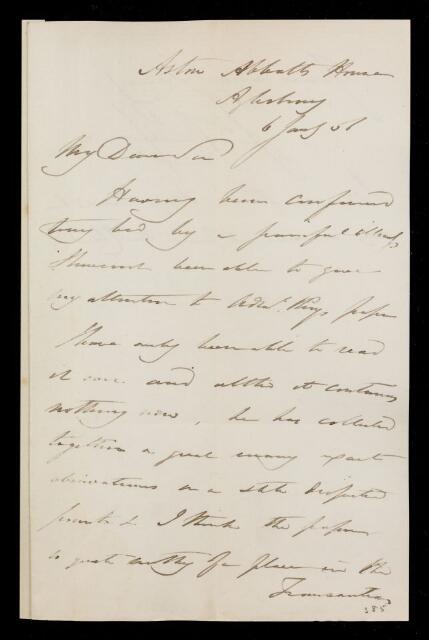 Aston Abbotts House
Aylesbury
6 Jany 56
My Dear Sir
Having been confined
to my bed by a painful illness,
I have not been able to give
my attention to Adml. King's paper
I have only been able to read
it once and altho it contains
nothing new, he has collected
together a great many exact
observations on a still disputed
point & I think the paper
is quite worthy of a place in the
Transactions
385